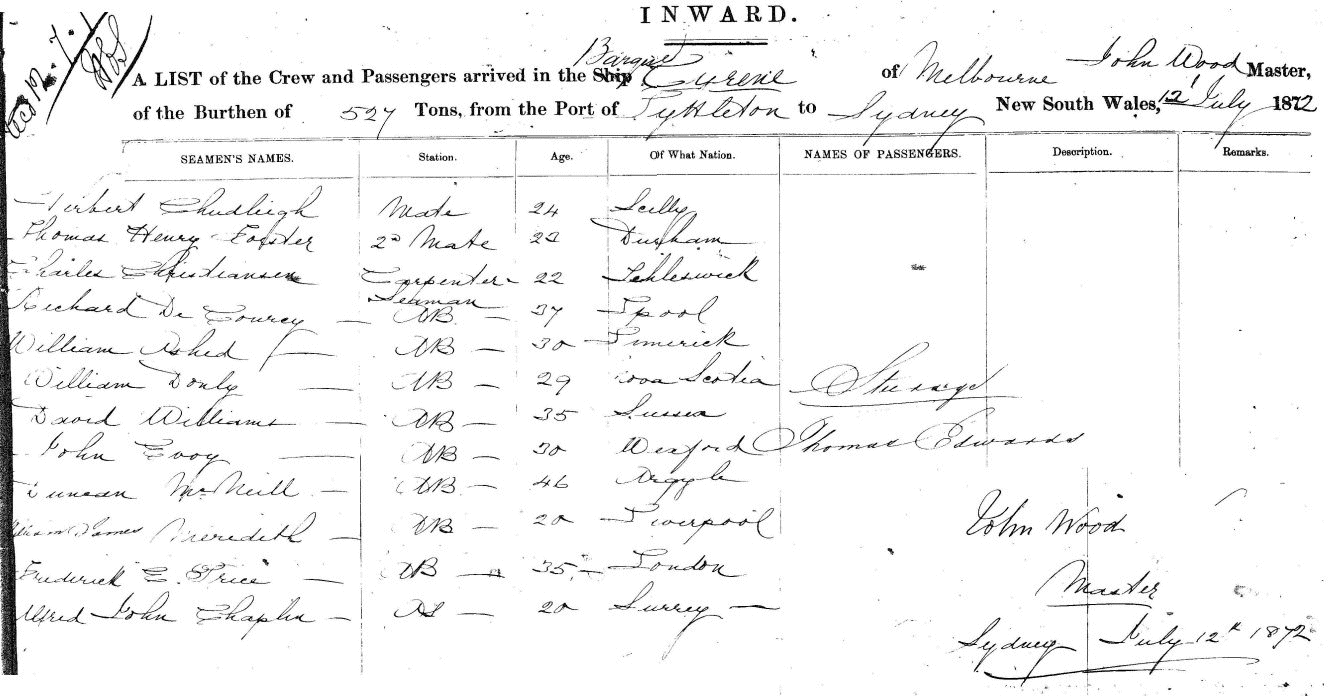 INWARD.
Barque
A LIST of the Crew and Passengers arrived in the Ship Cyrene of Melbourne John Wood Master,
of the Burthen of 527 Tons, from the Port of Lyttleton to Sydney New South Wales, 12 July 1872
SEAMEN'S NAMES. Station. Age. Of What Nation. NAMES OF PASSENGERS. Description. Remarks.
Chudleigh Mate 24 Scilly
Thomas Henry Forster 2nd Mate 23 Durham
Charles Christiansen Carpenter 22 Schleswick
Seaman
Richard De Courcy — AB — 37 Lpool
William — AB — 30 Limerick
William Donly — AB — 29 Nova Scotia Steerage
David Williams — AB — 35 Sussex
John Evoy — AB — 30 Wexford Thomas Edwards
Duncan McNeill — AB — 46 Argyle
William James Meredith — AB — 20 Liverpool John Wood
Frederick E. Price — AB — 35 — London Master
Alfred John Chaplin — OS — 20 Surrey —
Sydney July 12th 1872